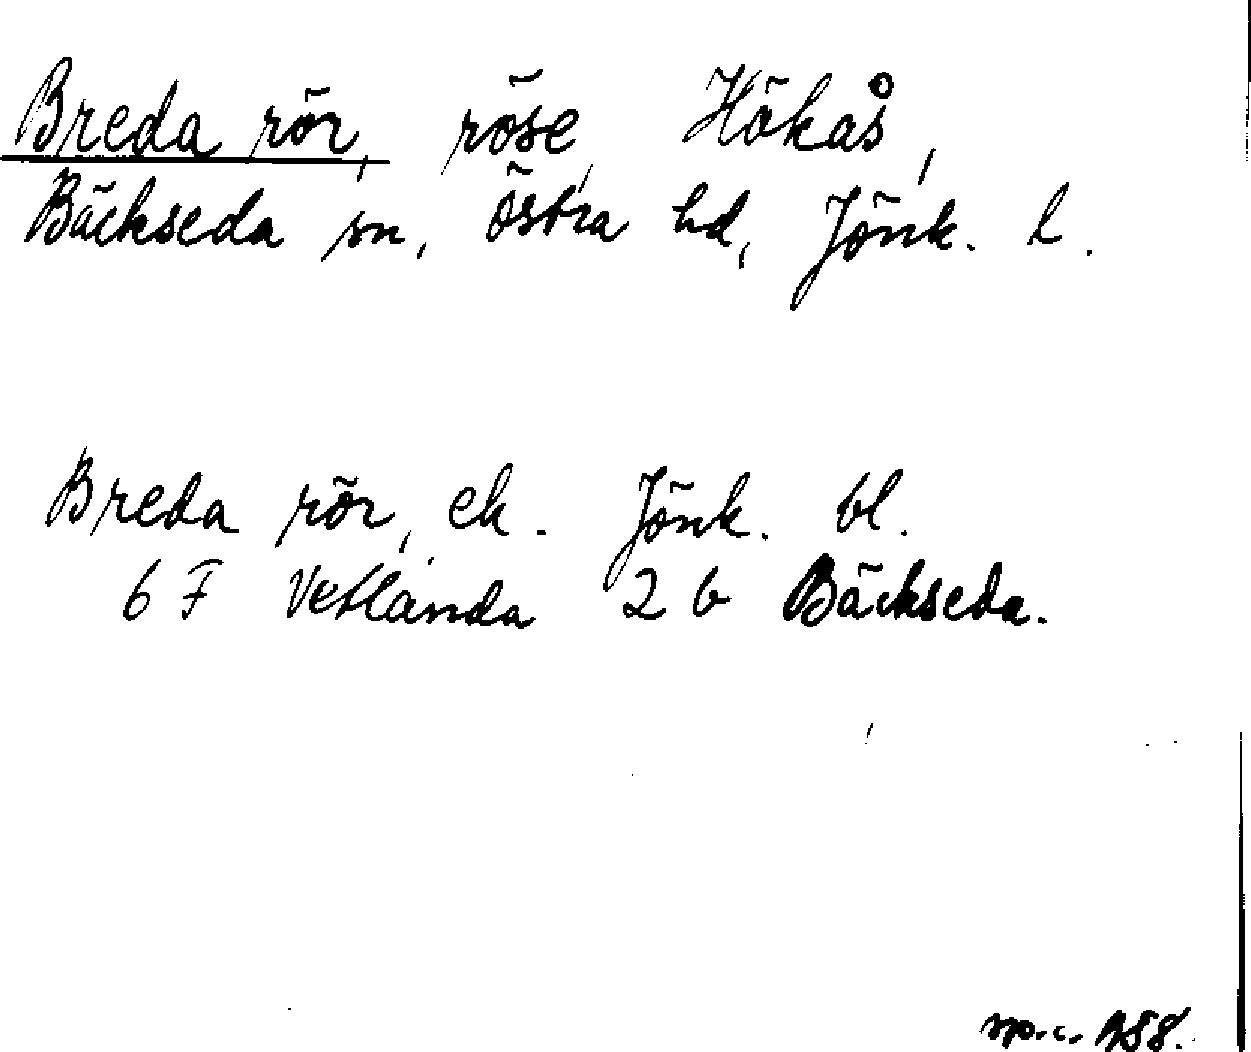 Breda rör, röse, Hökås,
Bäckseda sn, Östra hd, Jönk. l.
Breda rör, ek. Jönk. bl.
6 F Vetlanda 2 b Bäckseda.